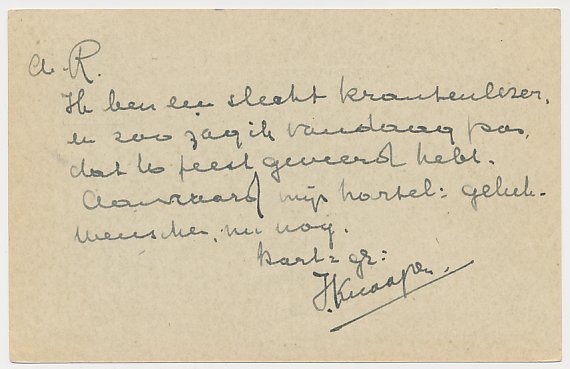 A. R.
Ik ben een slecht krantenlezer,
en zoo zag ik vandaag pas,
dat je feest gevierd hebt.
Aanvaard mijn hartel: geluk-
wenschen, nu nog.
hart: gr:
J. Knaapen.